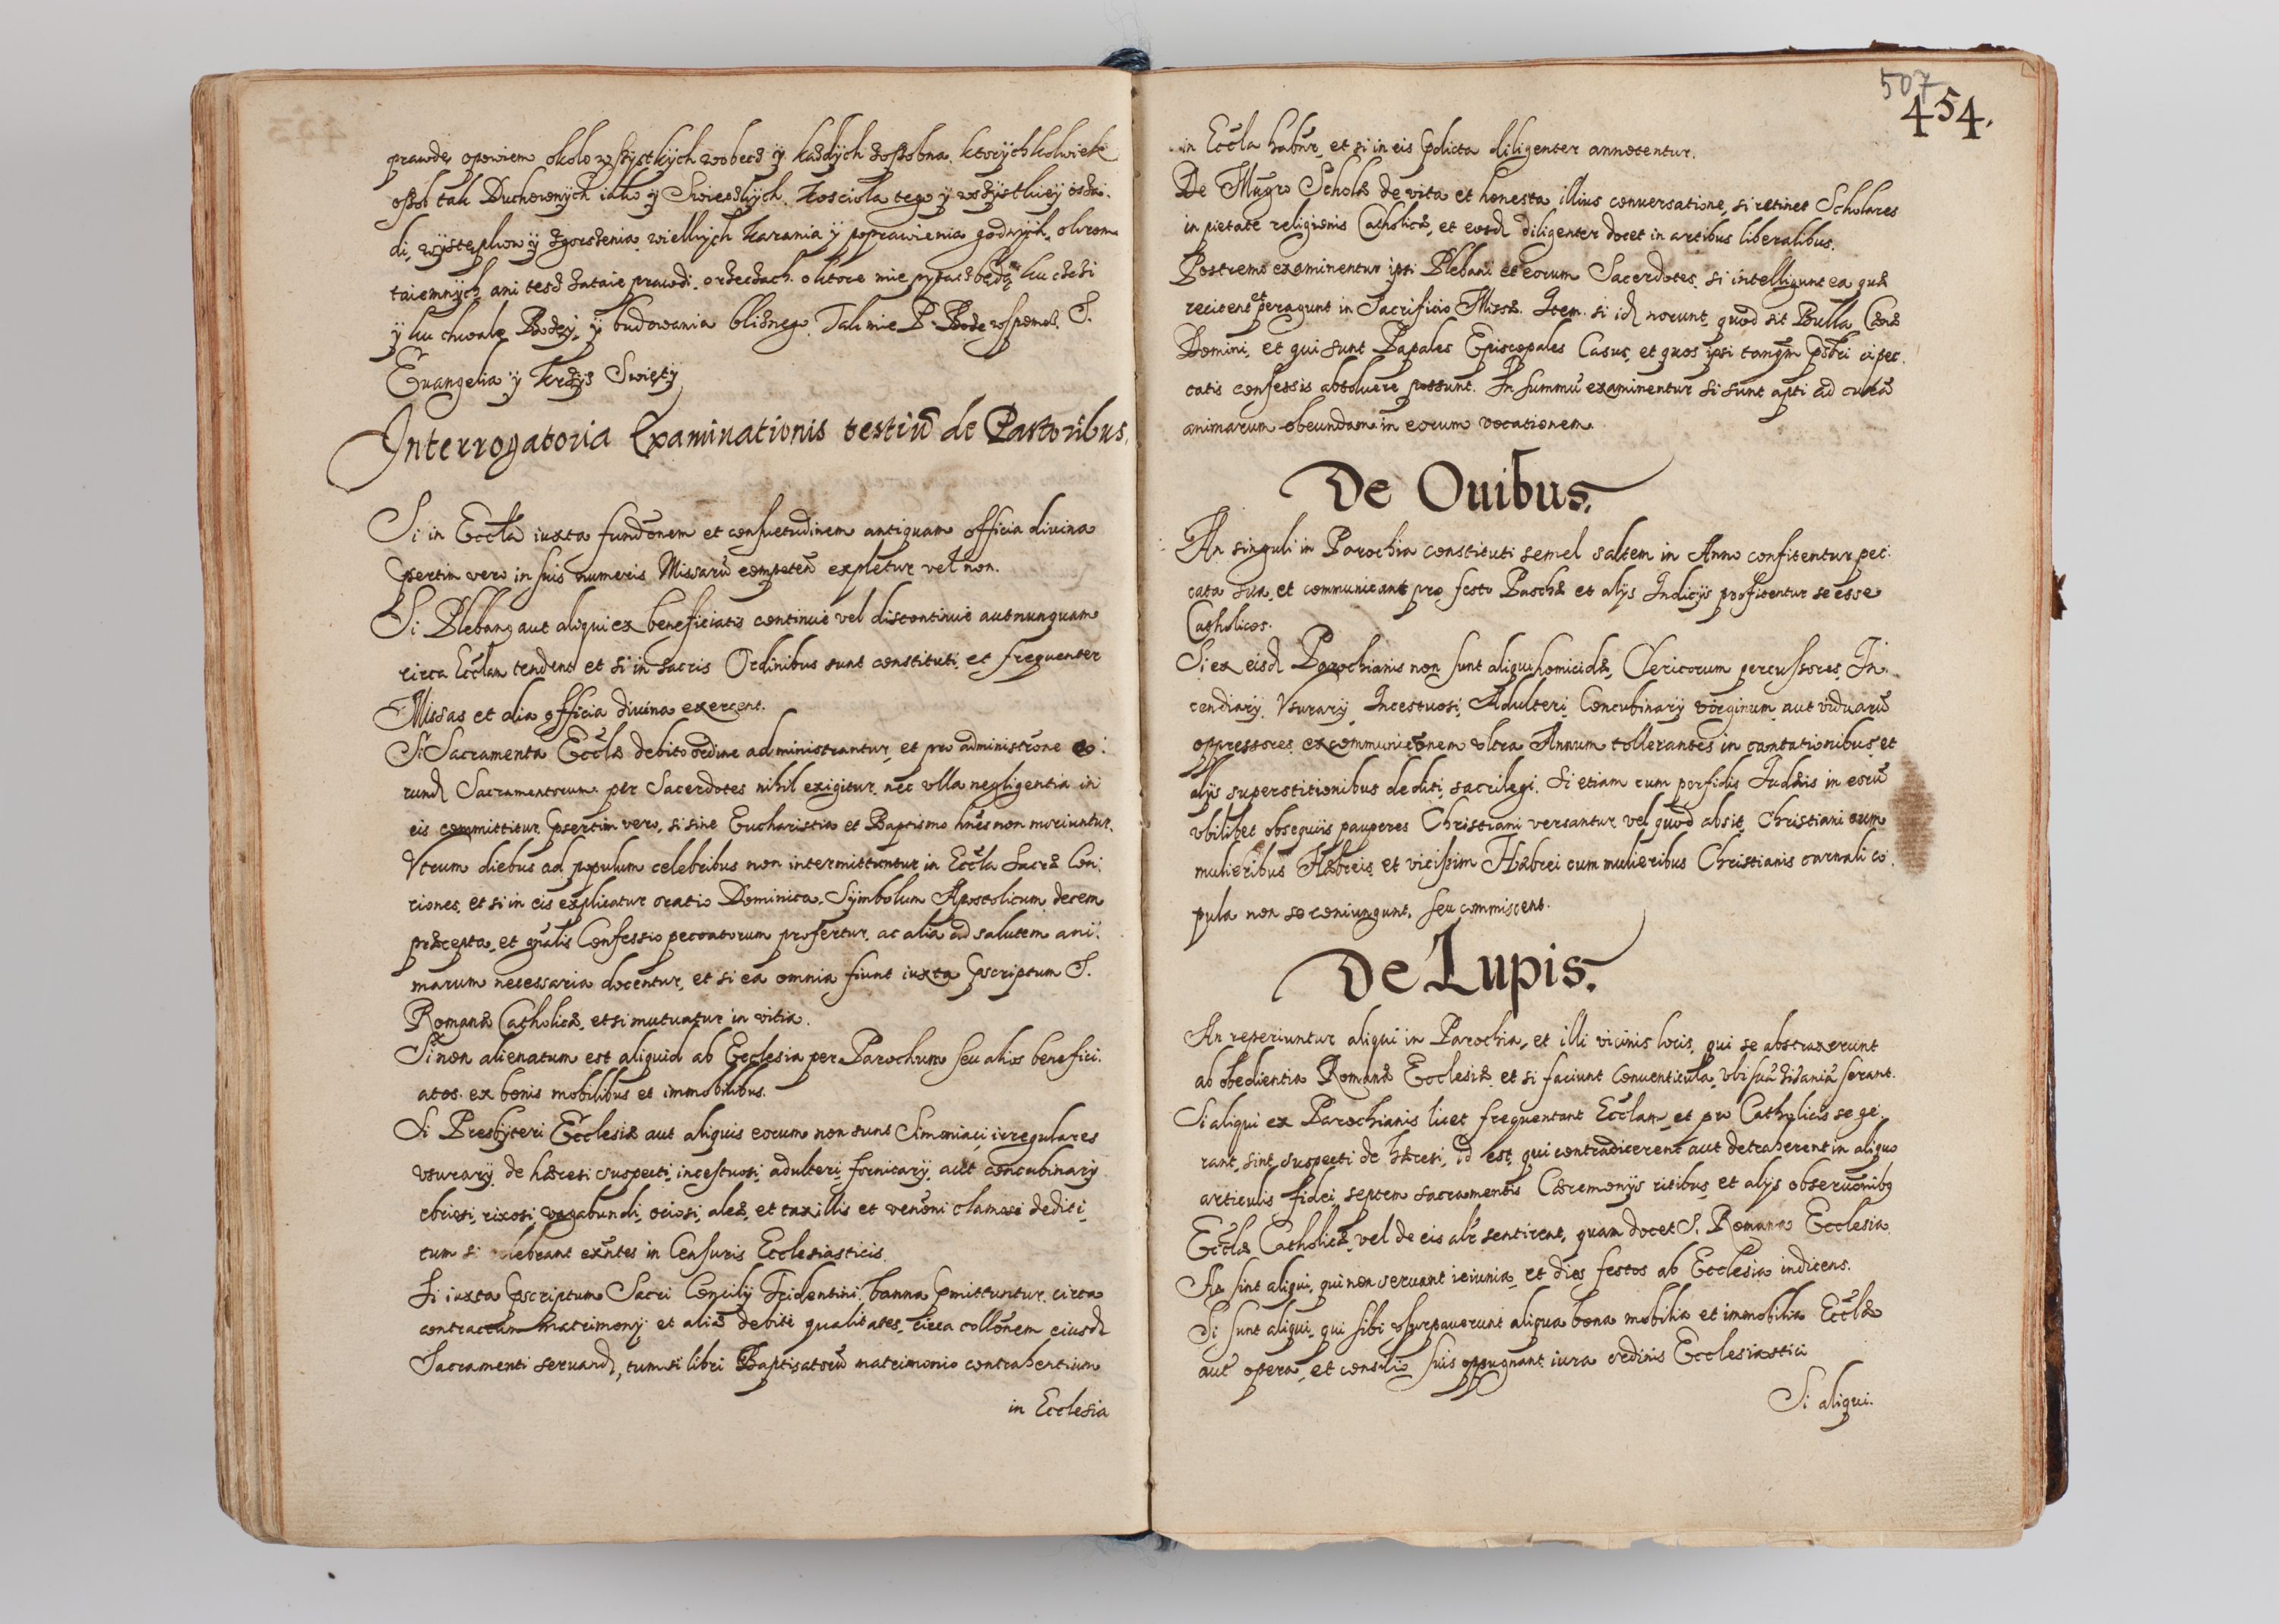 prawdę opowiem około wszystkych wobecz y kazdych zossobna, ktorychkolwiek
ossob tak Duchownych iako y Swieczkych, Kosciola tego y wszystkiey osza-
di, występkow y zgorszenia wielkych karania y poprawienia godnych, okrom
taiemnych, ani tesz zataie prawdi, orzeczach, oktore mie pytacz będą ku czczi
y ku chwale Bozey, y budowania bliznego. Tak mie P. Bode wspomoz, S.
Euangelia y Krzyz Swięty
Interrogatoria Examinationis testiū de Pastoribus.
Si in Eccła iuxta fundōnem et consuetudinem antiquam officia diuina
psertim vero in suis numeris Missarū competeñ expletur vel non.
Si Plebang aut aliqui ex beneficiatis continuè vel discontinuè aut nunquam
circa Ecclam tendent et si in sacris Ordinibus sunt constituti, et frequenter
Missas et alia officia diuina exercent.
Si Sacramenta Ecclæ debito ordine administrantur, et pro administrōne eo-
rund Sacramentorum per Sacerdotes nihil exigitur, nec vlla negligentia in
eis committitur, psertim vero, si sine Eucharistia et Baptismo hoīes non moriuntur.
Vtrum diebus ad populum celebribus non intermittuntur in Eccła Sacræ Con-
ciones, et si in eis explicatur oratio Dominica, Symbolum Apostolicum, decem
præcepta, et gnalis Confessio peccatorum profertur, ac alia ad salutem ani-
marum necessaria docentur, et si ea omnia fiunt iuxta pscriptum S.
Romanæ Catholicæ, et si mutuatur in vitia.
Si non alienatum est aliquid ab Ecclesia per Parochum seu alios benefici-
atos, ex bonis mobilibus et immobilibus.
Si Presbyteri Ecclesiæ aut aliquis eorum non sunt Simoniaci, irregulares
vsurarij, de hæresi suspecti, incestuosi, adulteri, fornicarij, aut concubinarij
ebriosi, rixosi, vagabundi, ociosi, aleæ, et taxillis et venōni clamosæ dediti,
tum si celebrant exntes in Censuris Ecclesiasticis.
Si iuxta pscriptum Sacri Concilij Tridentini, banna pmittuntur, circa
contractum matrimonij et aliæ debitè qualitates, circa collōnem eiusd
Sacramenti seruand, tum si libri Baptisatorū matrimonio contrahentium
in Ecclesia
507
454.
in Eccła habnr, et si in eis pdicta diligenter annotentur.
De Magro Scholæ de vita et honesta illius conuersatione, si retinet Scholares
in pietate religionis Catholicæ, et eosd diligenter docet in artibus liberalibus.
Postremo examinentur ipsi Plebani et eorum Sacerdotes, si intelligunt ea quæ
recitent et peragunt in Sacrificio Missæ. Item si id norunt, quod sit Bulla Cænæ
Domini, et qui sunt Papales Episcopales Casus, et quos ipsi tanqm psbri a pec-
catis confessis absoluere possunt. In summū examinentur si sunt apti ad curā
animarum obeundam in eorum vocationem.
De Ouibus.
An singuli in Parochia constituti semel saltem in Anno confitentur pec-
cata sua, et communicant pro festo Paschæ et alijs Indicijs profitentur se esse
Catholicos.
Si ex eisd Parochianis non sunt aliqui homicidæ, Clericorum percussores, In-
cendiarij, Vsurarij, Incestuosi, Adulteri, Concubinarij virginum, aut viduarū
oppressores, excommunicōnem vltra Annum tollerantes, in cantationibus et
alijs superstitionibus dediti, sacrilegi. Si etiam cum perfidis Iudæis in eorū
vbilibet obsequiis pauperes Christiani versantur vel quod absit, Christiani cum
mulieribus Hæbreis, et vicissim Hæbrei cum mulieribus Christianis carnali co-
pula non se coniungunt, seu commiscent.
De Lupis.
An reperiuntur aliqui in Parochia, et illi vicinis locis, qui se abstraxerunt
ab obedientia Romanæ Ecclesiæ, et si faciunt Conuenticula, vbi suā zizaniā serant.
Si aliqui ex Parochianis licet frequentant Ecclam, et pro Catholicis se ge-
rant, sint suspecti de hæresi, id est, qui contradicerent aut detraherent in aliquo
articulis fidei, septem sacramentis Cæremonijs ritibus, et alijs obseruōnibg
Ecclæ Catholicæ, vel de eis alr sentirent, quam docet S. Romana Ecclesia.
An sint aliqui, qui non seruant ieiunia, et dies festos ab Ecclesia indicens.
Si sunt aliqui, qui sibi vsurpauerunt aliqua bona mobilia et immobilia Ecclæ
aut opera, et consilio suis oppugnant iura ordinis Ecclesiastici
Si aliqui.